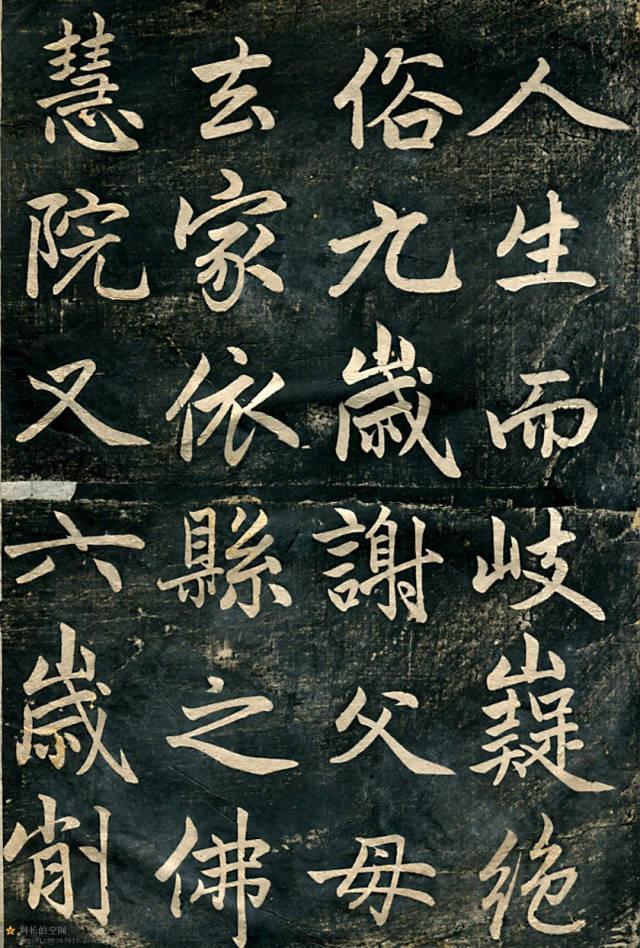 人生而岐嶷絶
俗九歲謝父母
去家依縣之佛
慧院又六歲削
科长的空间